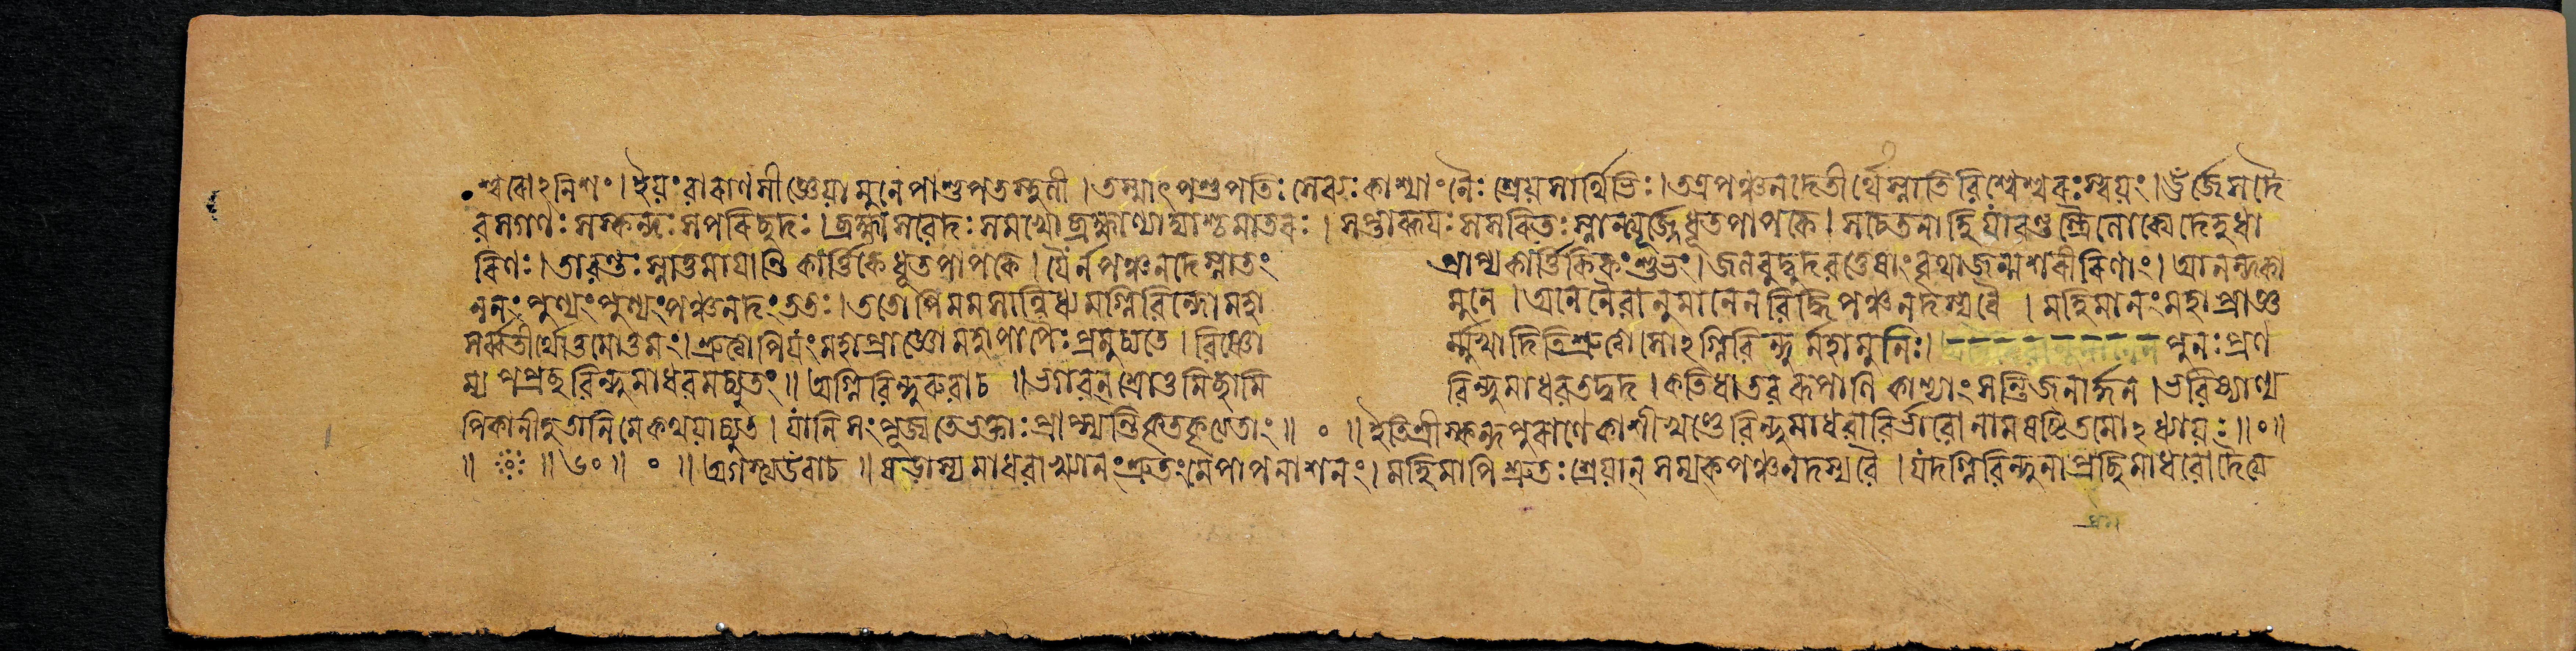 শ্বৰোঽনিশং। ইয়ং বাৰাণসী জ্ঞেয়া মুনে পাশুপতস্থলী। তস্মাৎ পশুপতিঃ সেব্যঃ কাশ্যাং নৈঃশ্রেয়সার্থিভিঃ। তত্র পঞ্চনদে তীর্থে স্নাতি বিশ্বেশ্বৰঃ স্বয়ং। ঊর্জে সদৈ
ব সগণঃ সস্কন্দঃ সপৰিছদঃ। ব্রহ্মা সবেদঃ সমখো ব্রহ্মাণ্যাদ্যাশ্চ মাতৰঃ। সপ্তাব্ধয়ঃ সসৰিতঃ স্নান্ত্যূর্জে ধূতপাপকে। সচেতনা হি যাবন্তস্ত্রৈলোক্যে দেহধা
ৰিণঃ। তাবন্তঃ স্নাতুমায়ান্তি কার্ত্তিকে ধূতপাপকে। যৈর্ন পঞ্চনদে স্নাতং প্রাপ্য কার্ত্তিকিকং শুভং। জলবুদ্বুদবত্তেষাং বৃথা জন্ম শৰীৰিণাং। আনন্দকা
ননং পুণ্যং পুণ্যং পঞ্চনদং ততঃ। ততোপি মম সান্নিধ্যমগ্নিবিন্দো মহামুনে। অনেনৈবানুমানেন বিদ্ধি পঞ্চনদস্য বৈ। মহিমানং মহাপ্রাজ্ঞ
সর্ব্বতীর্থোত্তমোত্তমং। শ্রুত্বাপি যং মহাপ্রাজ্ঞো মহাপাপৈঃ প্রমুচ্যতে। বিষ্ণোর্ম্মুখাদিতি শ্রুত্বা সোঽগ্নিবিন্দুর্মহামুনিঃ। পুনঃ প্রণ
ম্য পপ্রছ বিন্দুমাধবমচ্যুতং॥ অগ্নিবিন্দুৰুবাচ॥ ভগবন্ শ্রোতুমিছামি বিন্দুমাধব তদ্বদ। কতিধা তব ৰূপাণি কাশ্যাং সন্তি জনার্দ্দন। ভবিষ্যাণ্য
পি কানীহ তানি মে কথয়াচ্যুত। যানি সংপূজ্য তে ভক্তাঃ প্রাপ্স্যন্তি কৃতকৃত্যতাং॥ ০ ॥ ইতি শ্রীস্কন্দপুৰাণে কাশীখণ্ডে বিন্দুমাধবাবির্ভাবো নাম ষষ্টিতমোঽধ্যায়ঃ॥০॥
॥ ॥ ৬০॥ ০ ॥ অগস্ত্য উবাচ॥ ষড়াস্য মাধবাখ্যানং শ্রুতং মে পাপনাশনং। মহিমাপি শ্রুতঃ শ্রেয়ান্ সম্যক্ পঞ্চনদস্য বৈ। যদগ্নিবিন্দুনা প্রছি মাধবো দৈত্য